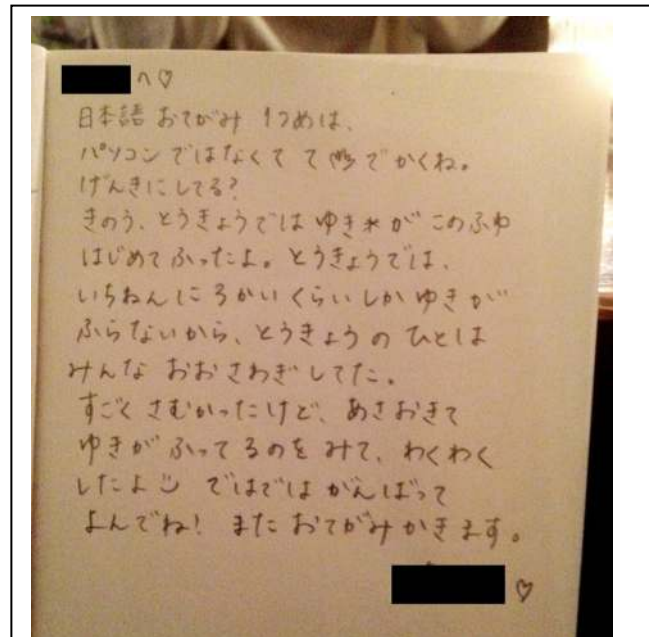 へ♡
日本語 おてがみ 1つめは、
パソコン ではなくて て でかくね。
げんきにしてる?
きのう、とうきょうでは ゆき* が このふゆ
はじめて ふったよ。とうきょうでは、
いちねんに 3かい くらいしか ゆきが
ふらないから、とうきょうの ひとは
みんな おおさわぎしてた。
すごく さむかったけど、あさおきて
ゆきが ふってるのを みて、わくわく
したよ ではでは がんばって
よんでね! また おてがみ かきます。
♡